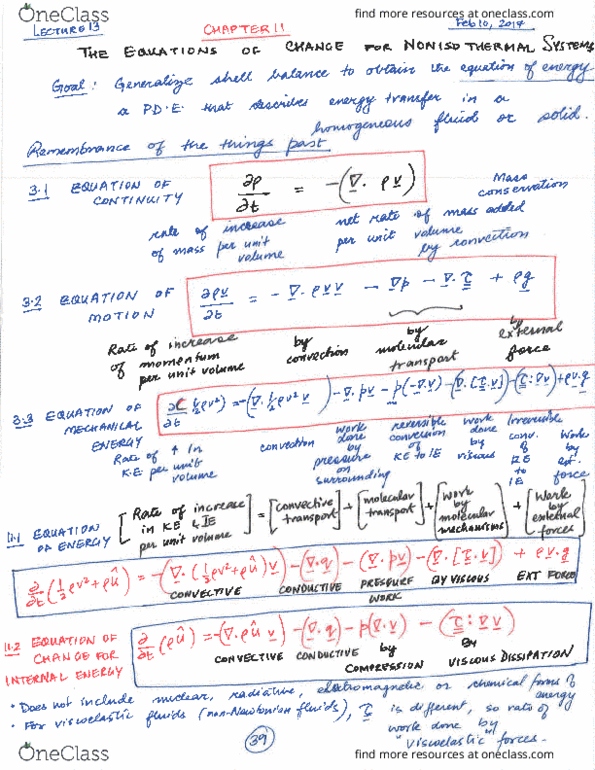 OneClass
find more resources at oneclass.com
LECTURE 13
CHAPTER 11
Feb 10, 2014
THE EQUATIONS OF CHANGE FOR NONISOTHERMAL SYSTEMS
Goal: Generalize shell balance to obtain the equation of energy
a P.D.E. that describes energy transfer in a
homogeneous fluid or solid.
Remembrance of the things past
3.1 EQUATION OF CONTINUITY
∂ρ/∂t = -(∇. ρv)
Mass conservation
rate of increase of mass per unit volume
net rate of mass added per unit volume by convection
3.2 EQUATION OF MOTION
∂ρv/∂t = - ∇. ρvv - ∇p - ∇. τ + ρg
Rate of increase of momentum per unit volume
by convection
by molecular transport
by external force
3.3 EQUATION OF MECHANICAL ENERGY
∂/∂t (½ρv²) = -(∇. ½ρv² v) - ∇. pv - p(-∇.v) - (∇. [τ.v]) - (-τ:∇v) + ρv.g
Rate of ↑ in K.E per unit volume
convection
work done by pressure on surrounding
reversible conversion of KE to IE
work done by viscous
Irreversible conv. of KE to IE
Work by ext. force
11.1 EQUATION OF ENERGY
[Rate of increase in KE & IE per unit volume] = [convective transport] + [molecular transport] + [Work by molecular mechanisms] + [Work by external forces]
∂/∂t (½ρv² + ρû) = -(∇. (½ρv² + ρû)v) - (∇.q) - (∇. pv) - (∇. [τ.v]) + ρv.g
CONVECTIVE CONDUCTIVE PRESSURE WORK BY VISCOUS EXT FORCE
11.2 EQUATION OF CHANGE FOR INTERNAL ENERGY
∂/∂t (ρû) = -(∇. ρû v) - (∇.q) - p(∇.v) - (τ:∇v)
CONVECTIVE CONDUCTIVE by COMPRESSION By VISCOUS DISSIPATION
• Does not include nuclear, radiative, electromagnetic or chemical forms of energy
• For viscoelastic fluids (non-Newtonian fluids), τ is different, so rate of
work done by
"viscoelastic" forces.
39
OneClass
find more resources at oneclass.com